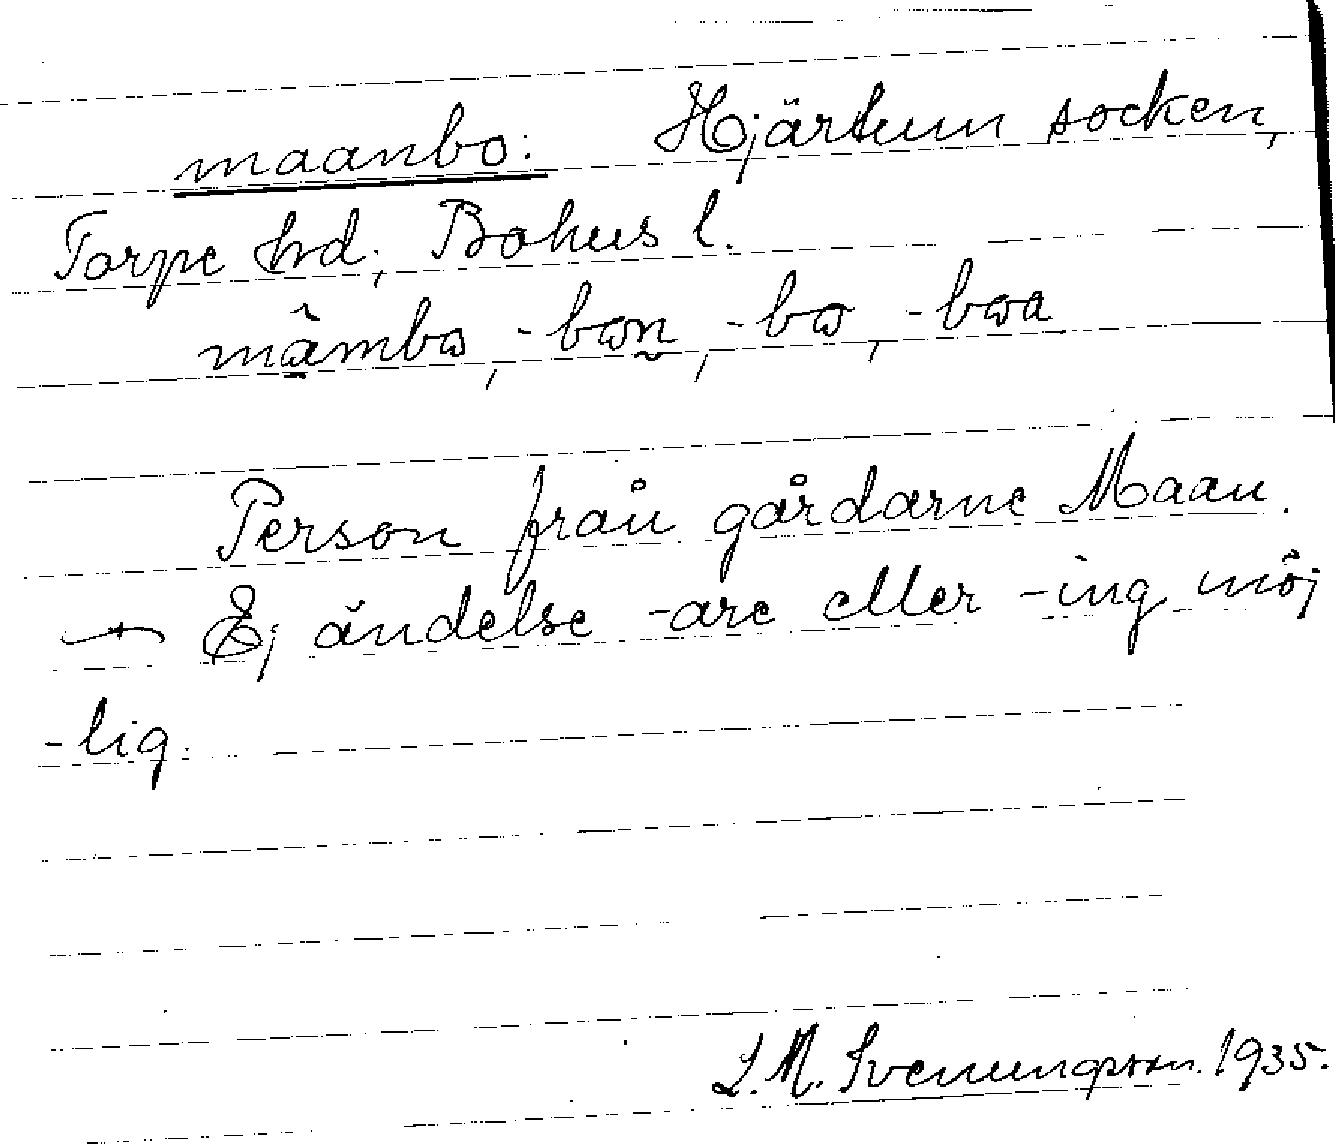 maanbo: Hjärtum socken,
Torpe hd; Bohus l.
mâmbω, -bωn, -bω, -bωa
Person från gårdarne Maan.
— Ej ändelse -are eller -ing möj
-lig.
L. M. Svenungsson. 1935.